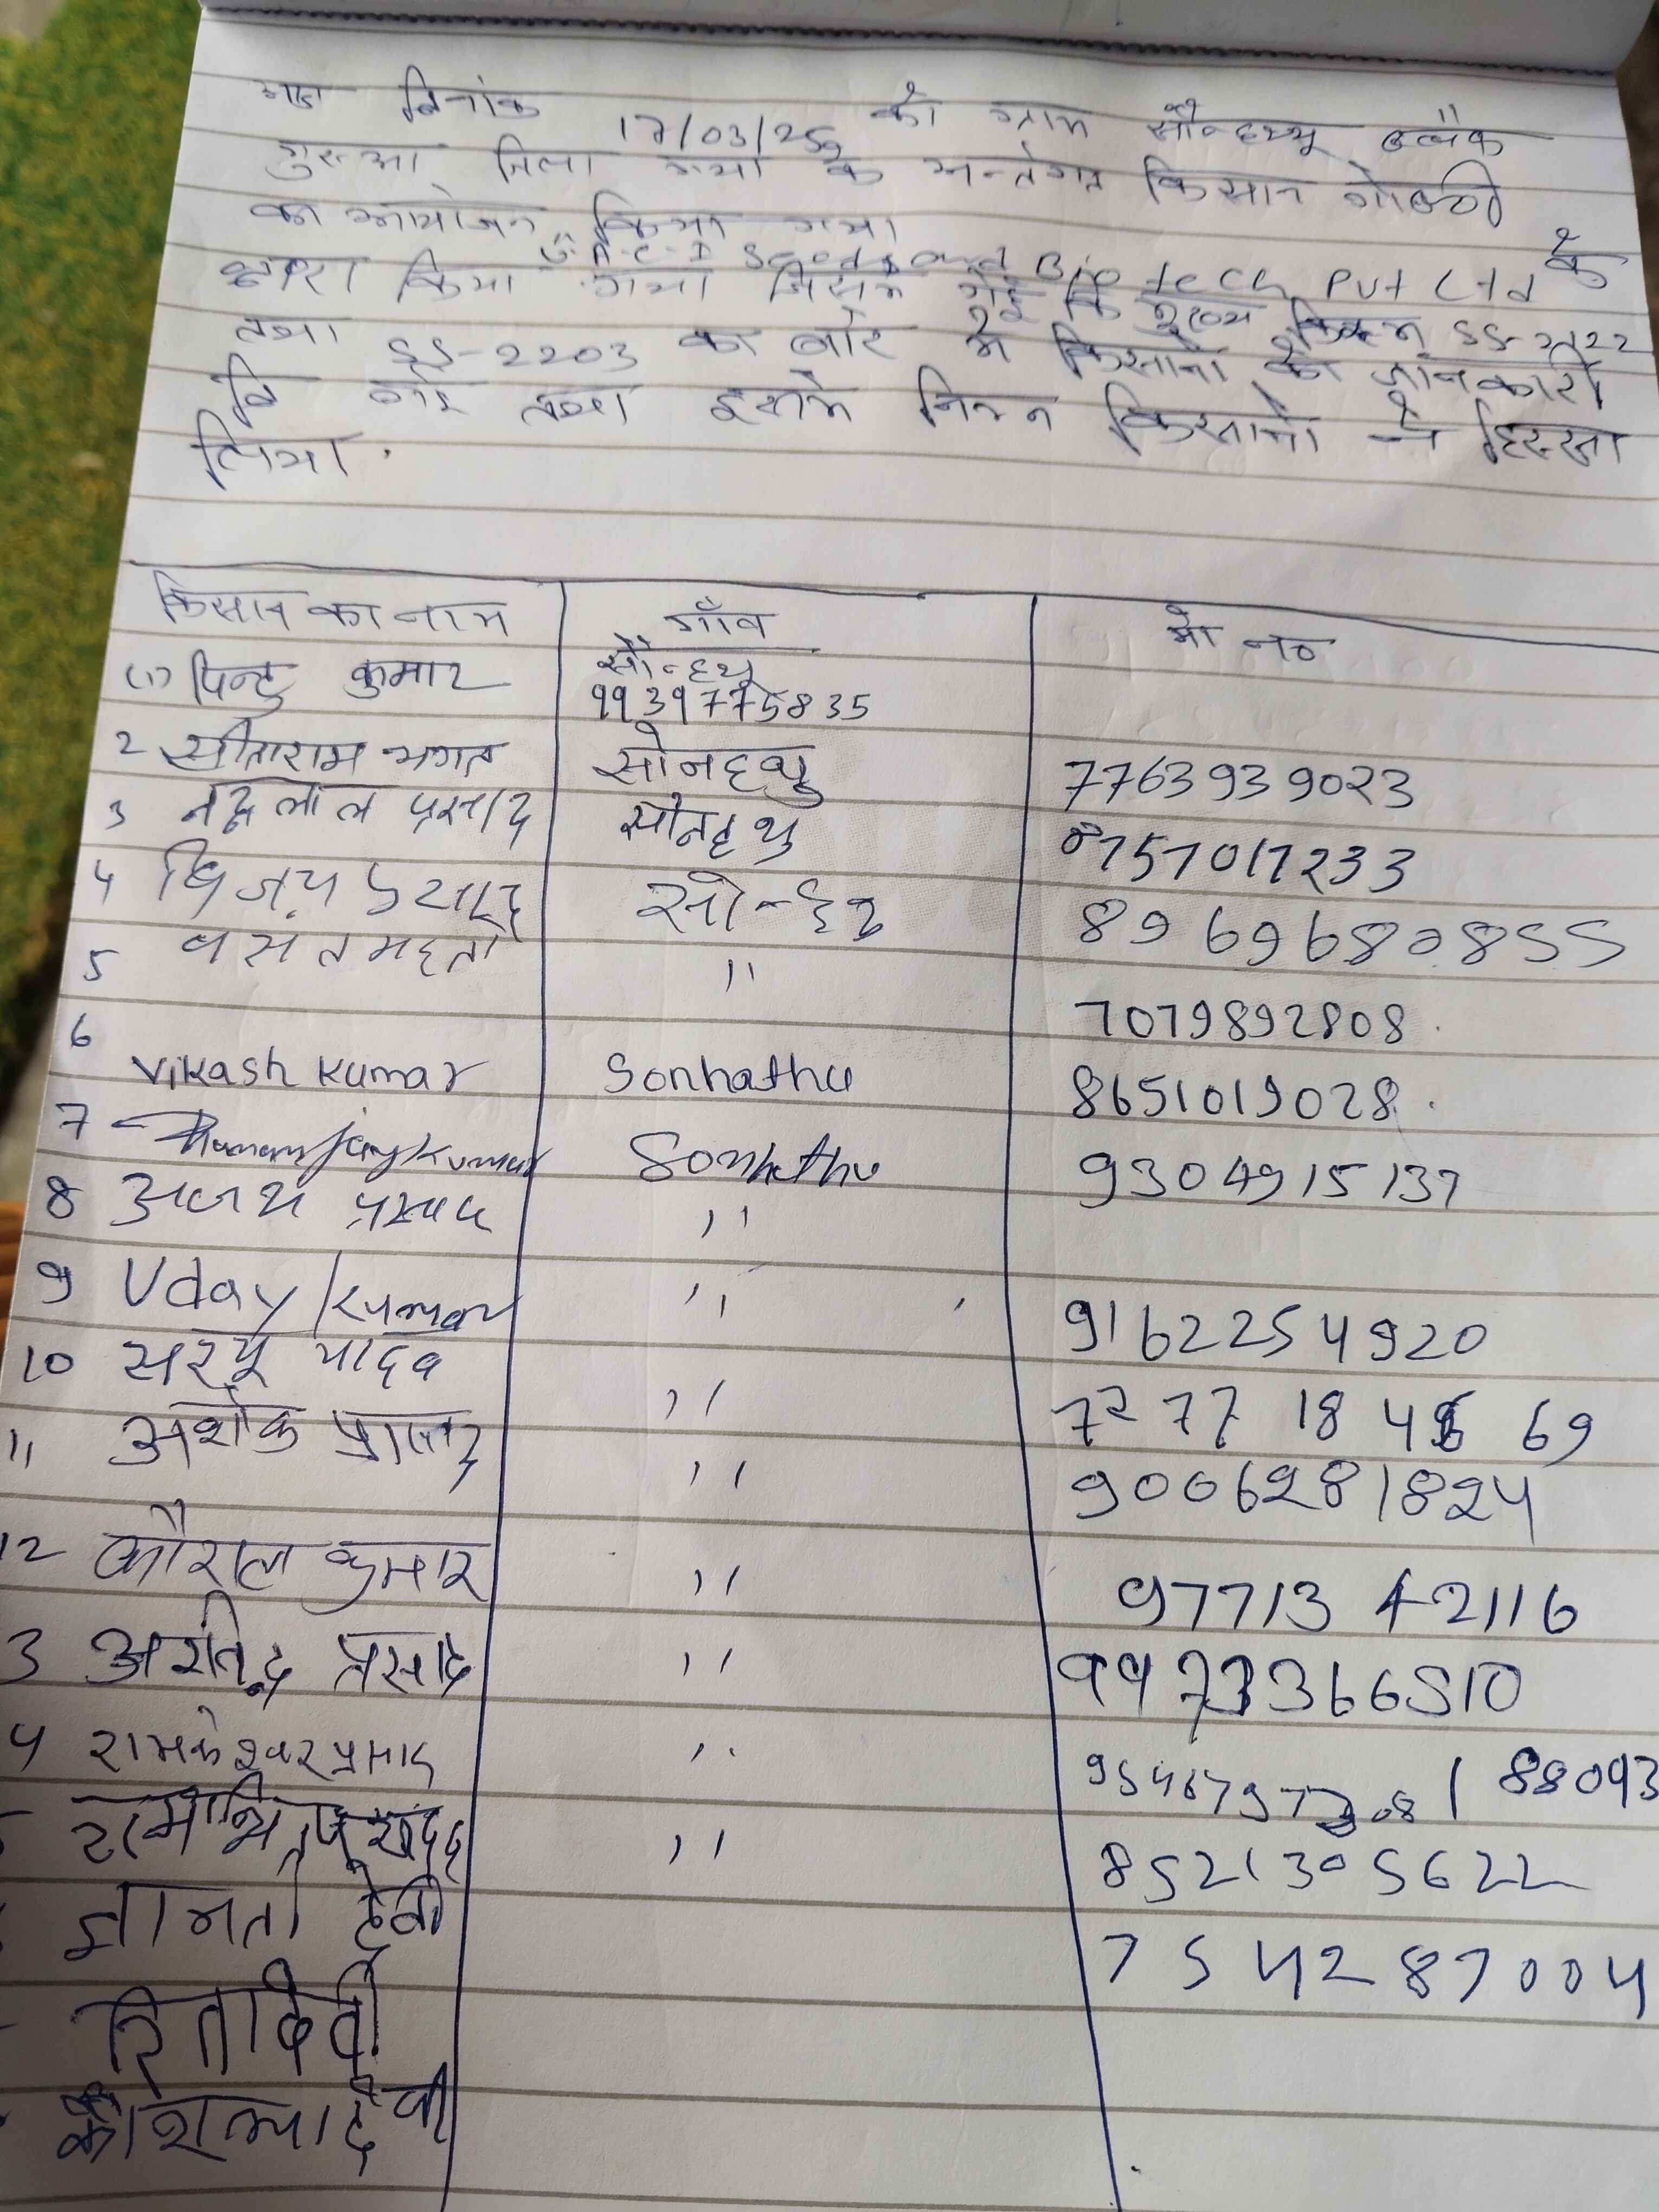 आज दिनांक 17/03/25 को ग्राम सौन्हथू ब्लौक
गुरुआ जिला गया के अन्तंगत किसान गोष्ठी
का आयोजन किया गया
Seeds and Bio tech Put Ltd के
द्वारा किया गया जिसमे गेहूँ कि किस्म SS-2122
तथा SS-2203 का बारे मे किसानो को जानकारी
दि गई तथा इसमे निम्न किसानो ने हिस्सा
लिया.
किसान का नाम गाँव मो न०
(1) पिन्टु कुमार सौन्हथू
9939775835
2 सीताराम भगत सोनहथु 7763939023
3 नन्दलाल प्रसाद सोनहथु 8757017233
4 बिजय प्रसाद सोन्हथु 8969680855
5 वसंत महतो " 7079892808
6 Vikash Kumar Sonhathu 8651019028
7 Dhananjay Kumar Sonhathu 9304915137
8 अजय प्रसाद "
9 Uday Kumar " 9162254920
10 सरयू यादव " 7277 18 69
11 अशोक प्रसाद " 9006281824
12 कौशल कुमार " 97713 42116
3 प्रसाद " 3366510
4 रामकेश्वर प्रसाद " 88093
" 8521305622
देवी 754287004
रिता देवी
कौशल्या देवी